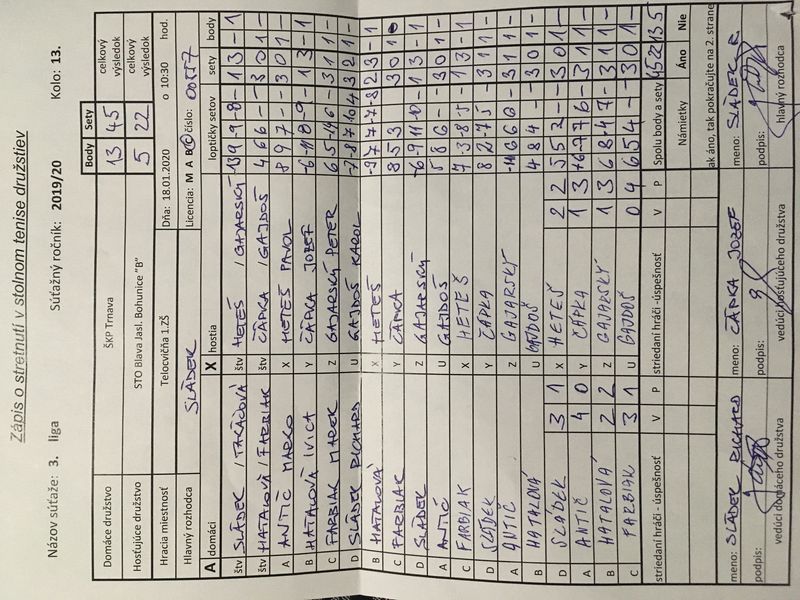 Zápis o stretnutí v stolnom tenise družstiev
Názov súťaže: 3. liga Súťažný ročník: 2019/20 Kolo: 13.
Body Sety celkový výsledok
Domáce družstvo ŠKP Trnava 13 45
Hosťujúce družstvo STO Blava Jasl. Bohunice "B" 5 22 celkový výsledok
Hracia miestnosť Telocvičňa 1.ZŠ Dňa: 18.01.2020 o 10:30 hod.
Hlavný rozhodca SLÁDEK Licencia: M A B C číslo: 00557
A domáci X hostia loptičky setov sety body
štv SLÁDEK / TARAČOVÁ štv HETEŠ / GAJARSKÝ
štv HATALOVÁ / FARBIAK štv ČÁPKA / GAJDOŠ 4 6 6 – – 3 0 1 –
A ANTIČ MARKO X HETEŠ PAVOL 8 9 7 – – 3 0 1 –
B HATALOVÁ IVICA Y ČÁPKA JOZEF -6 -11 8 -9 – 1 3 – 1
C FARBIAK MAREK Z GAJARSKÝ PETER
D SLÁDEK RICHARD U GAJDOŠ KAROL
B HATALOVÁ X HETEŠ -9 7 7 -7 -8 2 3 – 1
C FARBIAK Y ČÁPKA 8 5 3
D SLÁDEK Z GAJARSKÝ
A ANTIČ U GAJDOŠ 5 8 6 – – 3 0 1 –
C FARBIAK X HETEŠ 7 -3 -8 -5 – 1 3 – 1
D SLÁDEK Y ČÁPKA 8 2 -7 5 – 3 1 1 –
A ANTIČ Z GAJARSKÝ
B HATALOVÁ U GAJDOŠ 4 8 4 – – 3 0 1 –
D SLÁDEK 3 1 X HETEŠ 2 2 5 5 2 – – 3 0 1 –
A ANTIČ 4 0 Y ČÁPKA 1 3
B HATALOVÁ 2 2 Z GAJARSKÝ 1 3 6 8 -4 7 – 3 1 1 –
C FARBIAK 3 1 U GAJDOŠ 0 4 6 5 4 – – 3 0 1 –
striedaní hráči - úspešnosť V P striedaní hráči -úspešnosť V P Spolu body a sety 45 22 13 5
Námietky Áno Nie
ak áno, tak pokračujte na 2. strane
meno: SLÁDEK RICHARD meno: ČÁPKA JOZEF meno: SLÁDEK R.
podpis: podpis: podpis:
vedúci domáceho družstva vedúci hosťujúceho družstva hlavný rozhodca